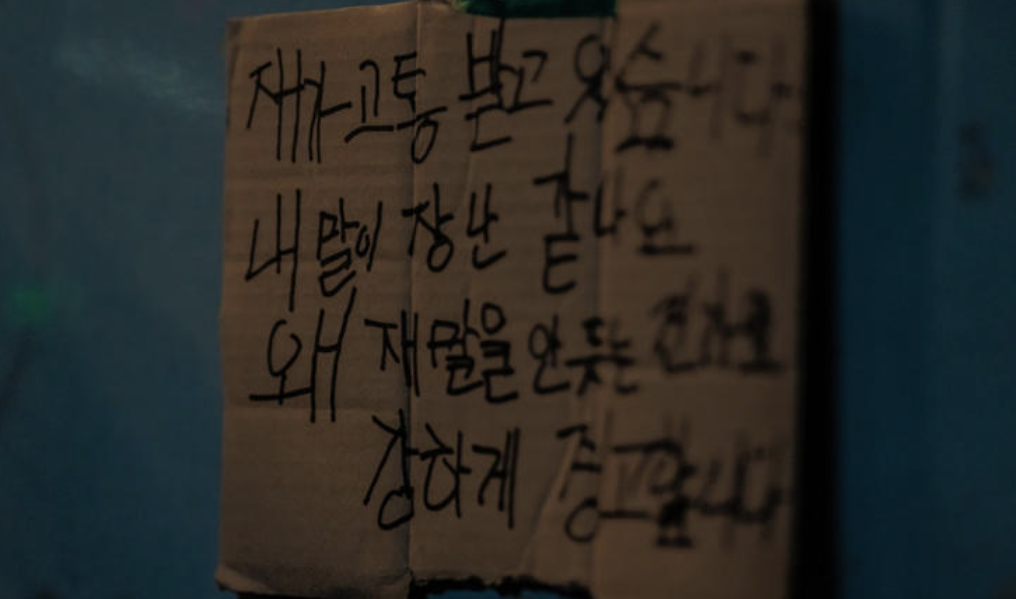 재가 고통 받고 있습니다
내 말이 장난 같나요
왜 재 말을 안 듯는
강하게 경고합니다